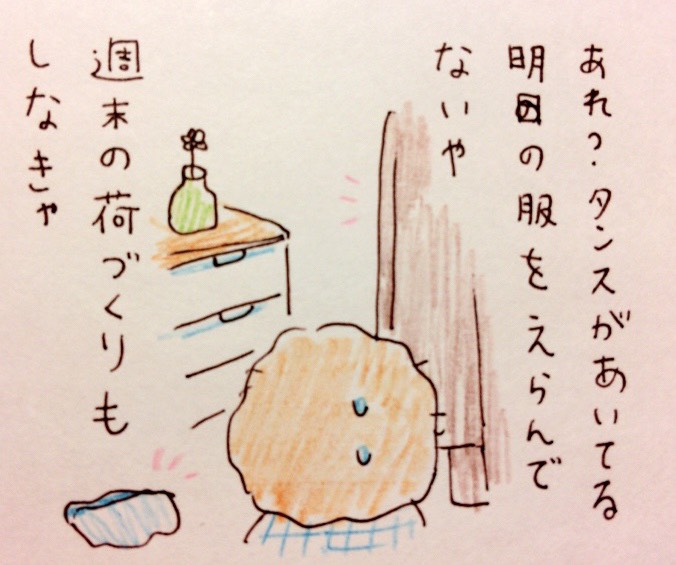 あれ?タンスがあいてる
明日の服をえらんで
ないや
週末の荷づくりも
しなきゃ